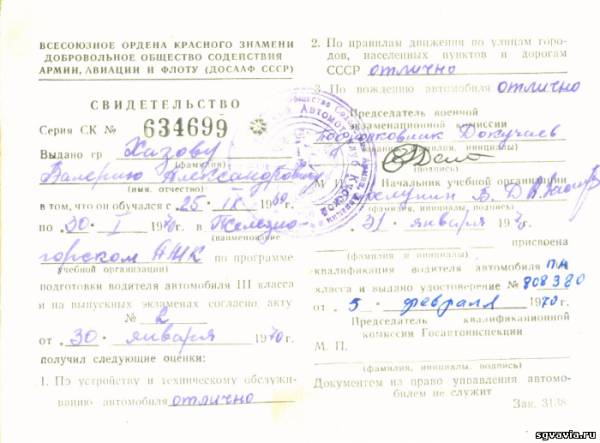 ВСЕСОЮЗНОЕ ОРДЕНА КРАСНОГО ЗНАМЕНИ
ДОБРОВОЛЬНОЕ ОБЩЕСТВО СОДЕЙСТВИЯ
АРМИИ, АВИАЦИИ И ФЛОТУ (ДОСААФ СССР)
СВИДЕТЕЛЬСТВО
Серия СК № 634699
Выдано гр Хазову
(фамилия)
Валерию Александровичу
(имя, отчество)
в том, что он обучался с 25 IX 1969
по 30 I 1970 г. в Железно-
(наименование
горском АМК по программе
учебной организации)
подготовки водителя автомобиля III класса
и на выпускных экзаменах согласно акту
№ 2
от 30 января 1970 г.
получил следующие оценки:
1. По устройству и техническому обслужи-
ванию автомобиля отлично
2. По правилам движения по улицам горо-
дов, населенных пунктов и дорогам
СССР отлично
3. По вождению автомобиля отлично
Председатель военной
экзаменационной комиссии
подполковник Докучаев
(фамилия, инициалы)
(подпись)
М. П. Начальник учебной организации
(фамилия, инициалы, подпись)
31 января 1970 г.
присвоена
(фамилия и инициалы)
квалификация водителя автомобиля
класса и выдано удостоверение № 808380
от 5 февраля 1970 г.
Председатель квалификационной
комиссии Госавтоинспекции
М. П.
(фамилия, инициалы, подпись)
Документом на право управления автомо-
билем не служит
Зак. 3138
sgvavia.ru